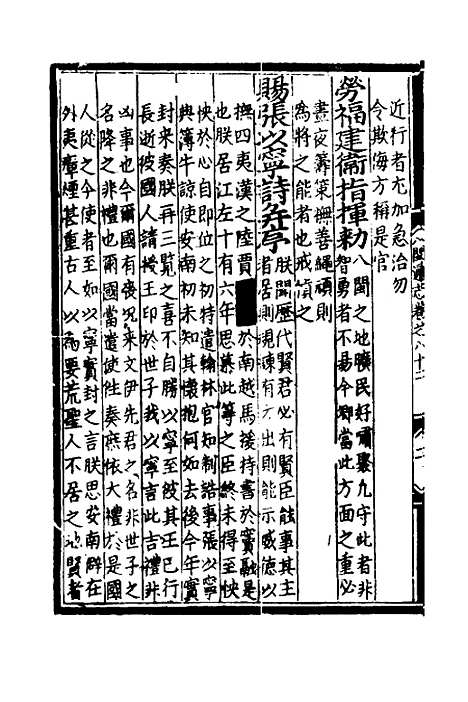 近行者尤加急治勿
令欺侮方稱是官
勞福建衛指揮勅
八閩之地曠民好嘯聚凡守此者非
智勇者不易今卿當此方面之重必
晝夜籌策撫善繩頑則
為將之能者也戒慎之
賜張以寧詩并序
朕聞歷代賢君必有賢臣能事其主
者居則規諫有方出則能示威德以
撫四夷漢之陸賈
於南越馬援持書於竇融是
也朕居江左十有六年思慕此等之臣終未得至怏
怏於心自即位之初特遣翰林官知制誥事張以寧
與簿牛諒使安南初未知其懷抱何如去後今年實
封来奏朕再三覽之喜不自勝以寧至彼其王已行
長逝彼國人請授王印於世子我以寧言此吉禮非
凶事也今爾國有喪況来文伊先君之名非世子之
名降之非禮也爾國當遣使往奏庶依大禮於是國
人從之今使者至如以寧實封之言朕思安南僻在
外夷瘴煙甚重古人以為要荒聖人不居之地賢者
八閩通志卷之八十二